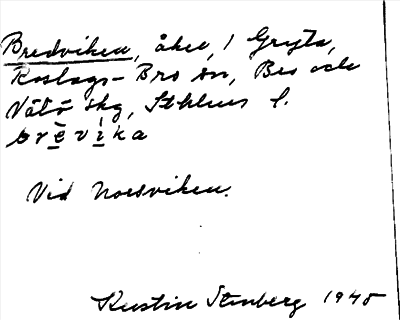 Bredviken, åker, 1 Gryta,
Roslags-Bro sn, Bro och
Vätö skg, Sthlms l.
brèvìka
Vid Norsviken.
Kerstin Stenberg 1945